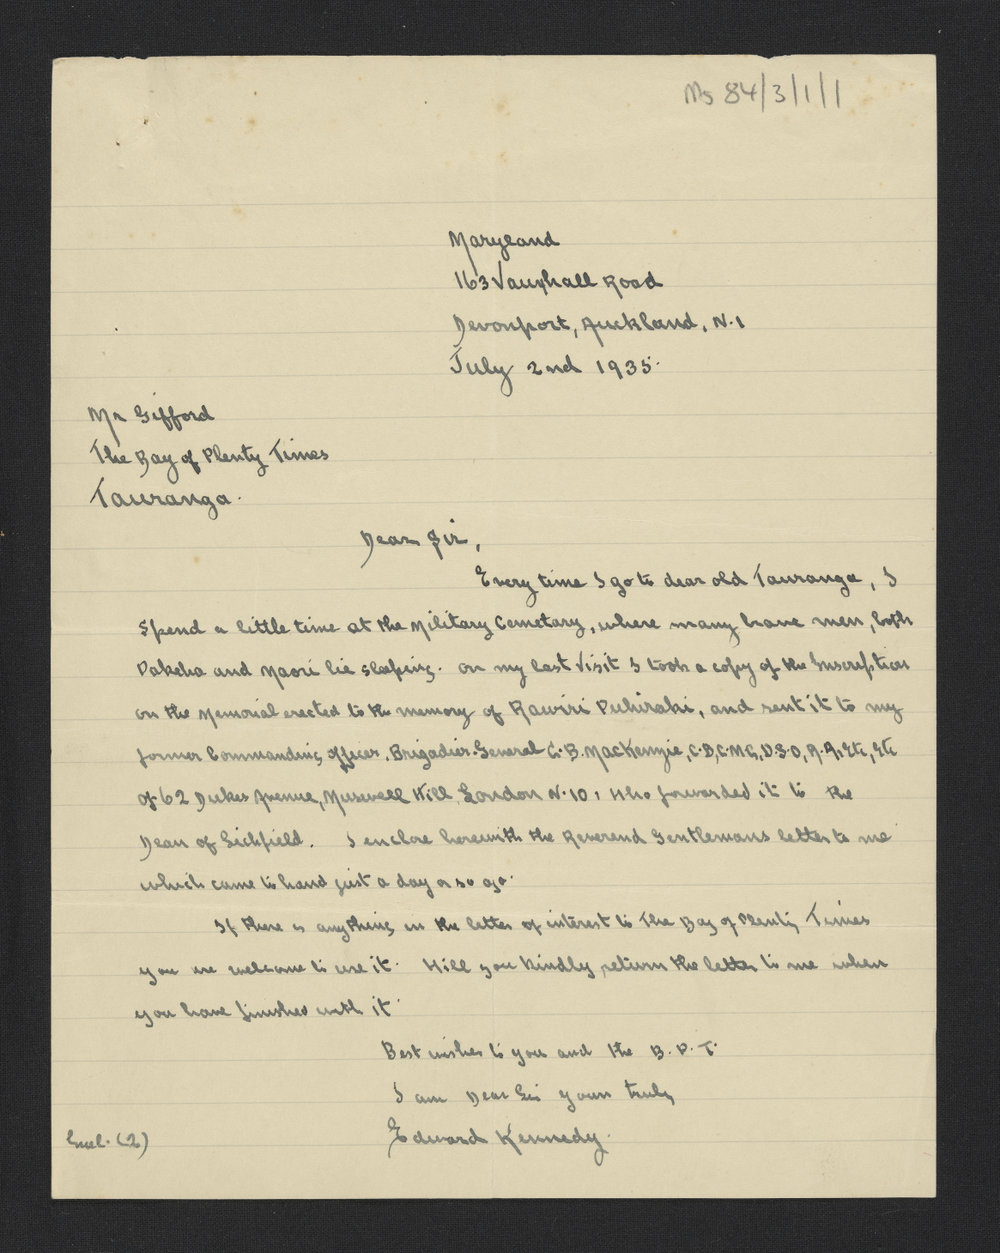 Ms 84/3/1/1
Maryland
163 Vauxhall Road
Devonport, Auckland, N.1
July 2nd 1935.
Mr Gifford
The Bay of Plenty Times
Tauranga.
Dear Sir,
Every time I go to dear old Tauranga, I
spend a little time at the Military Cemetary, where many brave men, both
Pakeha and Maori lie sleeping. On my last visit I took a copy of the Inscription
on the Memorial erected to the memory of Rawiri Puhiraki, and sent it to my
former Commanding Officer, Brigadier-General C.B. MacKenzie, C.B, C.M.G, D.S.O, R.A, Etc, Etc
of 62 Dukes Avenue, Muswell Hill, London N.10, who forwarded it to the
Dean of Lichfield. I enclose herewith the Reverend Gentlemans letter to me
which came to hand just a day or so ago.
If there is anything in the letter of interest to The Bay of Plenty Times
you are welcome to use it. Will you kindly return the letter to me when
you have finished with it.
Best wishes to you and the B.P.T.
I am Dear Sir yours truly
Edward Kennedy.
Encl. (2)